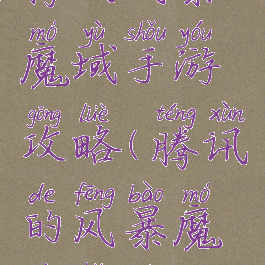 mó yù shǒu yóu
魔域手游
gōng lüè téng xùn
攻略(腾讯
de fēng bào mó
的风暴魔